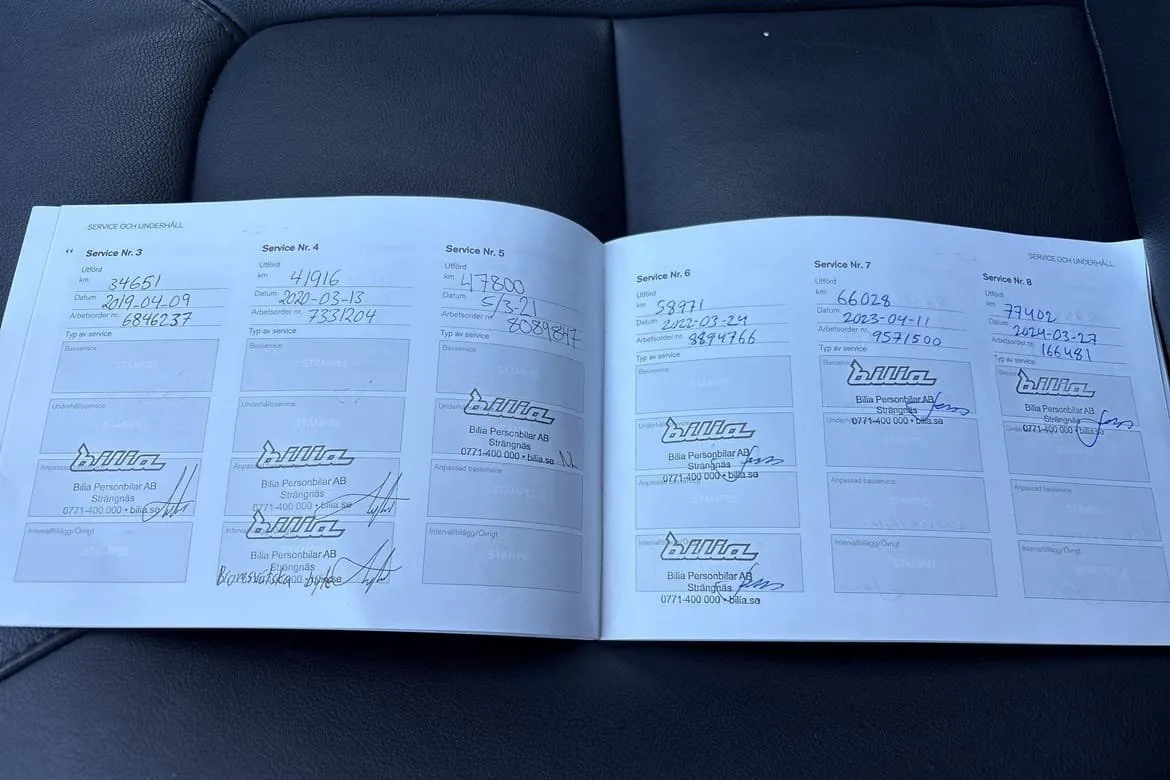 SERVICE OCH UNDERHÅLL
‹‹ Service Nr. 3
Utförd
km 34651
Datum 2019-04-09
Arbetsorder nr. 6846237
Typ av service
Basservice
STÄMPEL
Underhållsservice
STÄMPEL
Anpassad
bilia
Bilia Personbilar AB
Strängnäs
0771-400 000 • bilia.se
Intervalltillägg/Övrigt
STÄMPEL
Service Nr. 4
Utförd
km 41916
Datum 2020-03-13
Arbetsorder nr. 7331204
Typ av service
Basservice
STÄMPEL
Underhållsservice
STÄMPEL
bilia
Bilia Personbilar AB
Strängnäs
0771-400 000 • bilia.se
bilia
Bilia Personbilar AB
Strängnäs
Bromsvätska byte
Service Nr. 5
Utförd
km 47800
Datum 5/3-21
Arbetsorder nr. 8089847
Typ av service
Basservice
STÄMPEL
bilia
Bilia Personbilar AB
Strängnäs
0771-400 000 • bilia.se
Anpassad basservice
STÄMPEL
Intervalltillägg/Övrigt
STÄMPEL
Service Nr. 6
Utförd
km 58971
Datum 2022-03-24
Arbetsorder nr. 8894766
Typ av service
Basservice
STÄMPEL
bilia
Bilia Personbilar AB
Strängnäs
0771-400 000 • bilia.se
STÄMPEL
bilia
Bilia Personbilar AB
Strängnäs
0771-400 000 • bilia.se
Service Nr. 7
Utförd
km 66028
Datum 2023-04-11
Arbetsorder nr. 9571500
Typ av service
bilia
Bilia Personbilar AB
Strängnäs
0771-400 000 • bilia.se
Anpassad basservice
STÄMPEL
Intervalltillägg/Övrigt
STÄMPEL
SERVICE OCH UNDERHÅLL
Service Nr. 8
Utförd
km 77402
Datum 2024-03-27
Arbetsorder nr. 166481
Typ av service
bilia
Bilia Personbilar AB
Strängnäs
0771-400 000 • bilia.se
Anpassad basservice
Intervalltillägg/Övrigt